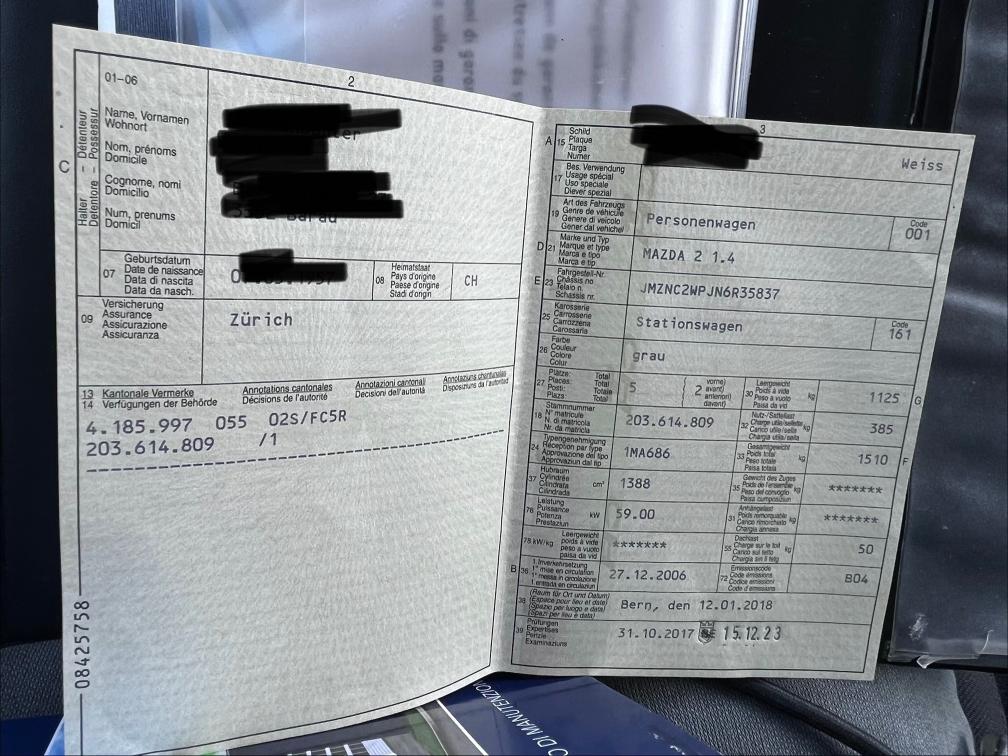 01-06
2
C
Halter – Détenteur
Detentore – Possessur
Name, Vornamen
Wohnort
Nom, prénoms
Domicile
Cognome, nomi
Domicilio
Num, prenums
Domicil
07
Geburtsdatum
Date de naissance
Data di nascita
Data da nasch.
08
Heimatstaat
Pays d'origine
Paese d'origine
Stadi d'origin
CH
09
Versicherung
Assurance
Assicurazione
Assicuranza
Zürich
13 Kantonale Vermerke
14 Verfügungen der Behörde
Annotations cantonales
Décisions de l'autorité
Annotazioni cantonali
Decisioni dell'autorità
Annotaziuns chantunalas
Disposiziuns da l'autoritad
4.185.997 055 02S/FC5R
203.614.809 /1
08425758
3
A 15
Schild
Plaque
Targa
Numer
Weiss
17
Bes. Verwendung
Usage spécial
Uso speciale
Diever spezial
19
Art des Fahrzeugs
Genre de véhicule
Genere di veicolo
Gener dal vehichel
Personenwagen
Code
001
D 21
Marke und Typ
Marque et type
Marca e tipo
Marca e tip
MAZDA 2 1.4
E 23
Fahrgestell-Nr.
Châssis no
Telaio n.
Schassis nr.
JMZNC2WPJN6R35837
25
Karosserie
Carrosserie
Carrozzeria
Carossaria
Stationswagen
Code
161
26
Farbe
Couleur
Colore
Colur
grau
27
Plätze: Total
Places: Total
Posti: Totale
Plazs: Total
5
2
vorne)
avant)
anteriori)
davant)
30
Leergewicht
Poids à vide
Peso a vuoto
Paisa da vid
kg
1125
G
18
Stammnummer
N° matricule
N. di matricola
Nr. da matricla
203.614.809
32
Nutz-/Sattellast
Charge utile/sellette
Carico utile/sella
Chargia utila/sella
kg
385
24
Typengenehmigung
Réception par type
Approvazione del tipo
Approvaziun dal tip
1MA686
33
Gesamtgewicht
Poids total
Peso totale
Paisa totala
kg
1510
F
37
Hubraum
Cylindrée
Cilindrata
Cilindrada
cm³
1388
35
Gewicht des Zuges
Poids de l'ensemble
Peso del convoglio
Paisa cumposiziun
kg
*******
76
Leistung
Puissance
Potenza
Prestaziun
kW
59.00
31
Anhängelast
Poids remorquable
Carico rimorchiato
Chargia annexa
kg
*******
78 kW/kg
Leergewicht
poids à vide
peso a vuoto
paisa da vid
*******
55
Dachlast
Charge sur le toit
Carico sul tetto
Chargia sin il tetg
kg
50
B 36
1. Inverkehrsetzung
1re mise en circulation
1a messa in circolazione
1. entrada en circulaziun
27.12.2006
72
Emissionscode
Code émissions
Codice emissioni
Code d'emissiuns
B04
38
(Raum für Ort und Datum)
(Espace pour lieu et date)
(Spazio per luogo e data)
(Spazi per lieu e data)
Bern, den 12.01.2018
39
Prüfungen
Expertises
Perizie
Examinaziuns
31.10.2017 BE 15.12.23
DI MANUTENZION